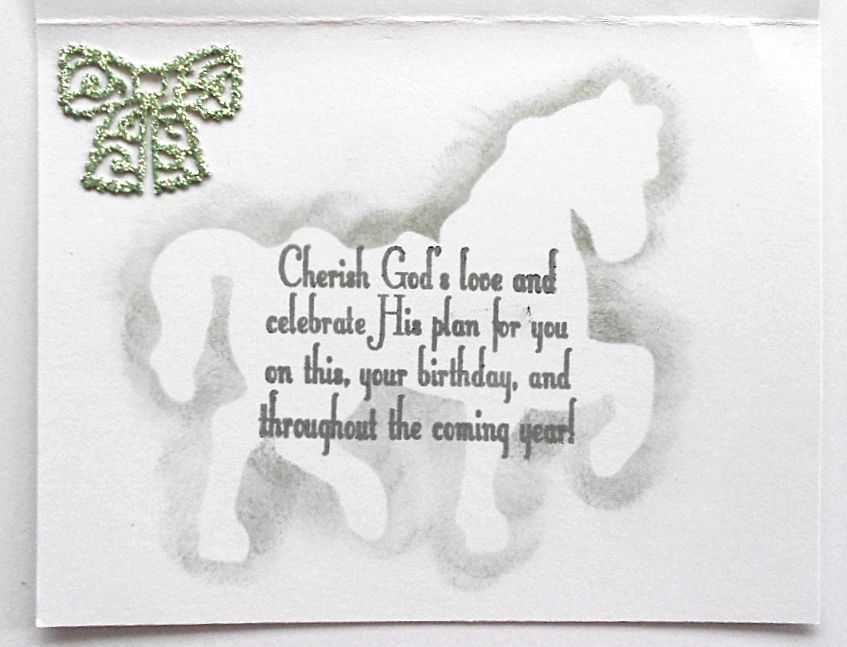 Cherish God's love and
celebrate His plan for you
on this, your birthday, and
throughout the coming year!